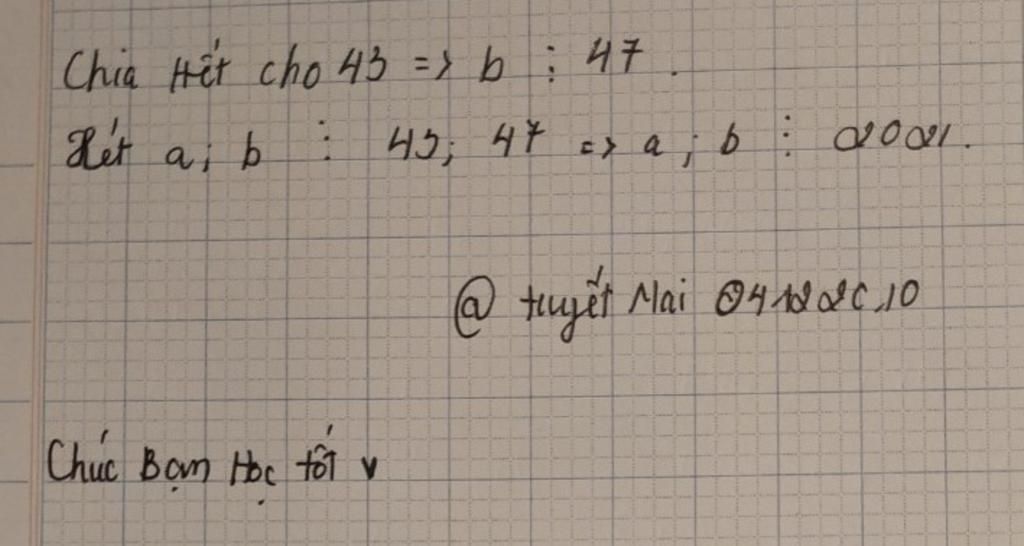 Chia Hết cho 43 => b ⋮ 47.
Xét a; b ⋮ 43; 47 => a; b ⋮ 2021.
@ tuyết Mai
Chúc Bạn Học tốt v